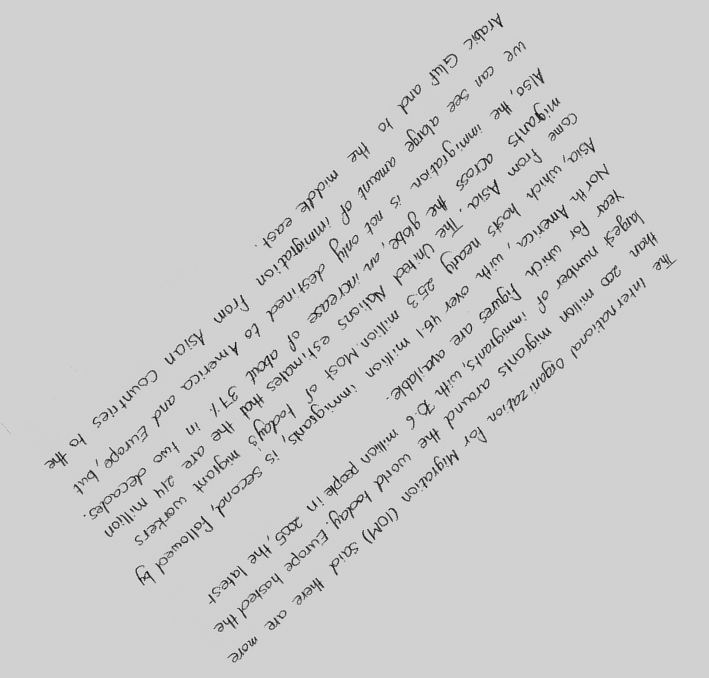 The international Organization for Migration (IOM) said there are more
than 200 million migrants around the world today. Europe hosted the
largest number of immigrants, with 70.6 million people in 2005, the latest
year for which figures are available.
North America, with over 45.1 million immigrants, is second, followed by
Asia, which hosts nearly 25.3 million. Most of today's migrant workers
come from Asia. The United Nations estimates that there are 214 million
migrants across the globe, an increase of about 37% in two decades.
Also, the immigration is not only destined to America and Europe, but
we can see alarge amount of immigration from Asian countries to the
Arabic Gluf and to the middle east.